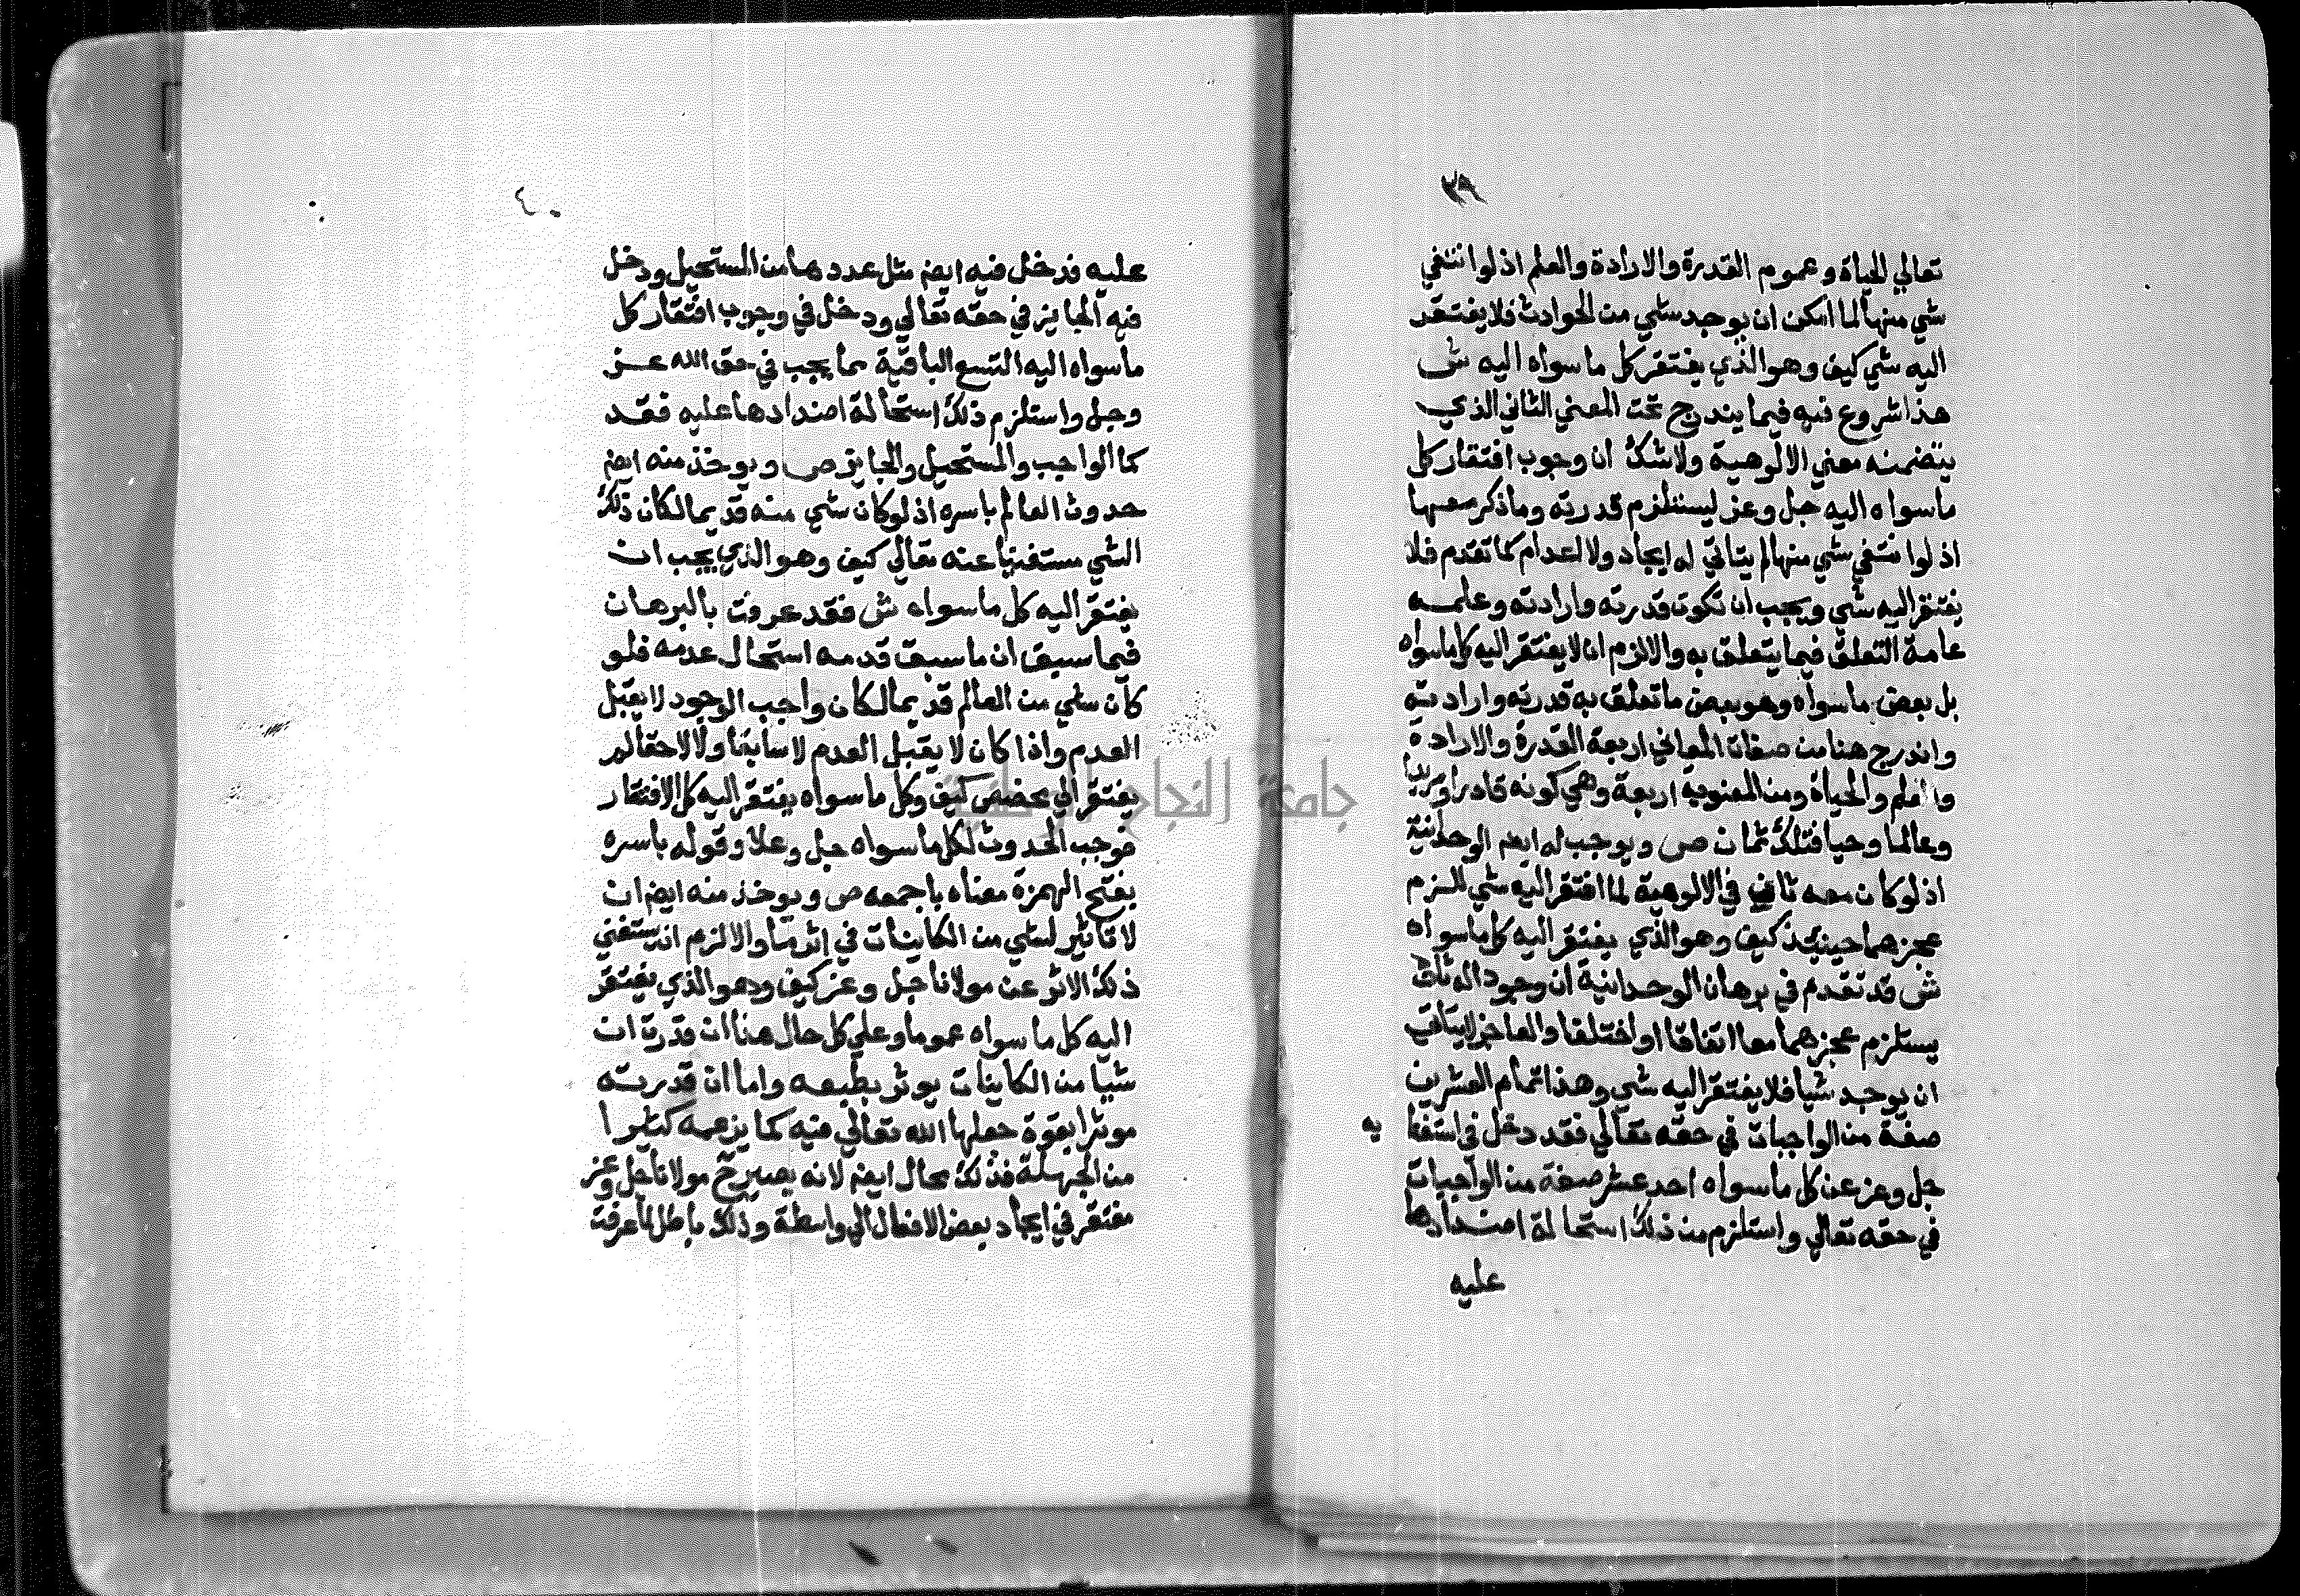 ٣٩
تعالي الحياة وعموم القدرة والارادة والعلم اذ لو انتفي
شي منها لما امكن ان يوجد شي من الحوادث فلا يفتقر
اليه شي كيف وهو الذي يفتقر كل ما سواه اليه ش
هذا شروع فيه فيما يندرج تحت المعني الثاني الذي
يتضمنه معني الالوهية ولا شك ان وجوب افتقار كل
ما سواه اليه جل وعز ليستلزم قدرته وما ذكر معها
اذ لو انتفي شي منها لم يتاتي له ايجاد ولا اعدام كما تقدم فلا
يفتقر اليه شي ويجب ان تكون قدرته وارادته وعلمه
عامة التعلق فيما يتعلق به والا لزم ان لا يفتقر اليه كل ما سواه
بل بعض ما سواه وهو بعض ما تعلق به قدرته وارادته
واندرج هنا من صفات المعاني اربعة القدرة والارادة
والعلم والحياة ومن المعنوية اربعة وهي كونه قادرا ومريدا
وعالما وحيا فتلك ثمان ص ويوجب له ايضم الوحدانية
اذ لو كان معه ثاني في الالوهية لما افتقر اليه شي للزم
عجزهما حينيذ كيف وهو الذي يفتقر اليه كل ما سواه
ش قد تقدم في برهان الوحدانية ان وجود اله ثان
يستلزم عجزهما معا اتفاقا او اختلفا والعاجز لا يتاتي
ان يوجد شيا فلا يفتقر اليه شي وهذا تمام العشرين
صفة من الواجبات في حقه تعالي فقد دخل في استغنا يه
جل وعز عن كل ما سواه احد عشر صفة من الواجبات
في حقه تعالي واستلزم من ذلك استحالة اضدادها
عليه
٤٠
عليه فدخل فيه ايضم مثل عددها من المستحيل ودخل
فيه الجايز في حقه تعالي ودخل في وجوب افتقار كل
ما سواه اليه التسع الباقية مما يجب في حق الله عز
وجل واستلزم ذلك استحالة اضدادها عليه فقد
كما الواجب والمستحيل والجايز ص ويوخذ منه ايضم
حدوث العالم باسره اذ لو كان شي منه قديما لكان ذلك
الشي مستغنيا عنه تعالي كيف وهو الذي يجب ان
يفتقر اليه كل ما سواه ش فقد عروت بالبرهان
فيما سبق ان ما سبق قدمه استحال عدمه فلو
كان شي من العالم قديما لكان واجب الوجود لا يقبل
العدم واذا كان لا يقبل العدم لا سابقا ولا لاحقا لم
يفتقر الي مخصص كيف وكل ما سواه يفتقر اليه كل الافتقار
فوجب الحدوث لكل ما سواه جل وعلا وقوله باسره
بفتح الهمزة معناه باجمعه ص ويوخذ منه ايضم ان
لا تاثير لشي من الكاينات في اثر ما والا لزم ان يستغني
ذلك الاثر عن مولانا جل وعز كيف وهو الذي يفتقر
اليه كل ما سواه عموما وعلي كل حال هذا ان قدرت ان
شيا من الكاينات يوثر بطبعه واما ان قدرته
موثرا بقوة جعلها الله تعالي فيه كما يزعمه كثيرا
من الجهلة فذلك محال ايضم لانه يصير ح مولانا جل وعز
مفتقر في ايجاد بعض الافعال الي واسطة وذلك باطل لما عرفت
جامعة النجاح الوطنية